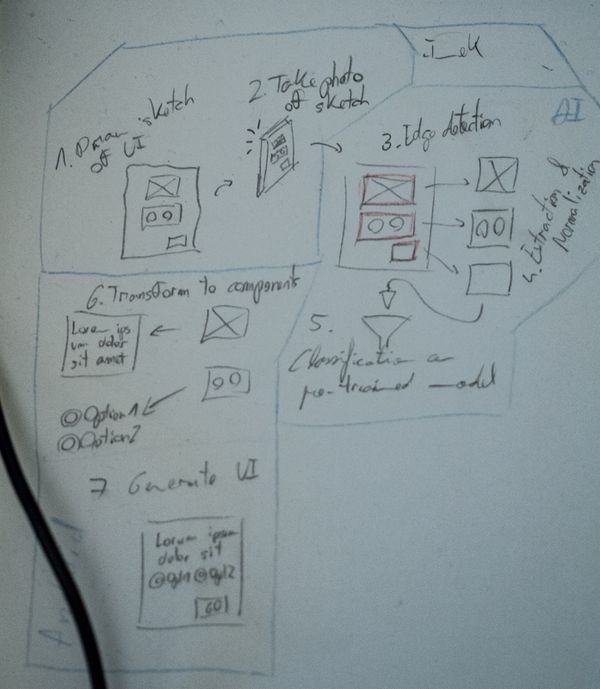 1. Draw sketch
of UI
2. Take photo
of sketch
3. Edge detection
AI
4. Extraction &
Normalization
5.
Classification on
pre-trained model
6. Transform to components
Lorem ips
um dolor
sit amet
Option1
Option2
7 Generate UI
Lorum ipsum
dolor sit
Opt1 Opt2
GO